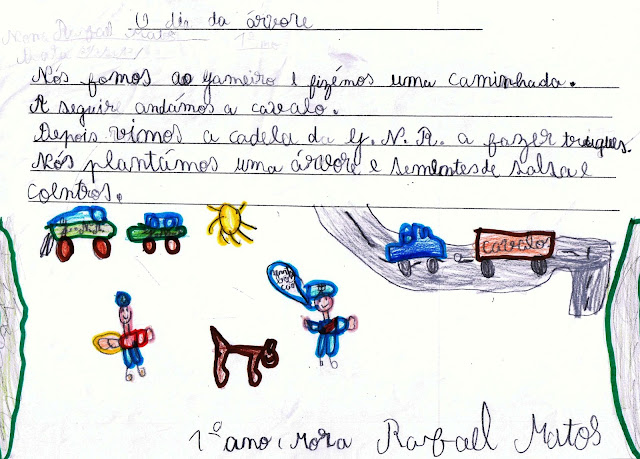 O dia da árvore
Nome Rafael Matos
1º ano
Nós fomos ao Gameiro e fizémos uma caminhada.
A seguir andámos a cavalo.
Depois vimos a cadela da G. N. R. a fazer truques.
Nós plantámos uma árvore e sementes de salsa e
coentros.
cavalo
1º ano, Mora Rafael Matos